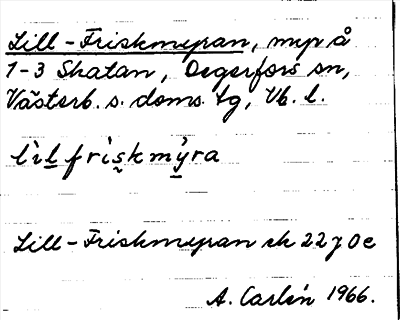 Lill-Friskmyran, myr å
1-3 Skatan, Degerfors sn,
Västerb. s. doms. tg, Vb. l.
lìl frìskmýra
Lill-Friskmyran ek 22 J 0e
A. Carlén 1966.